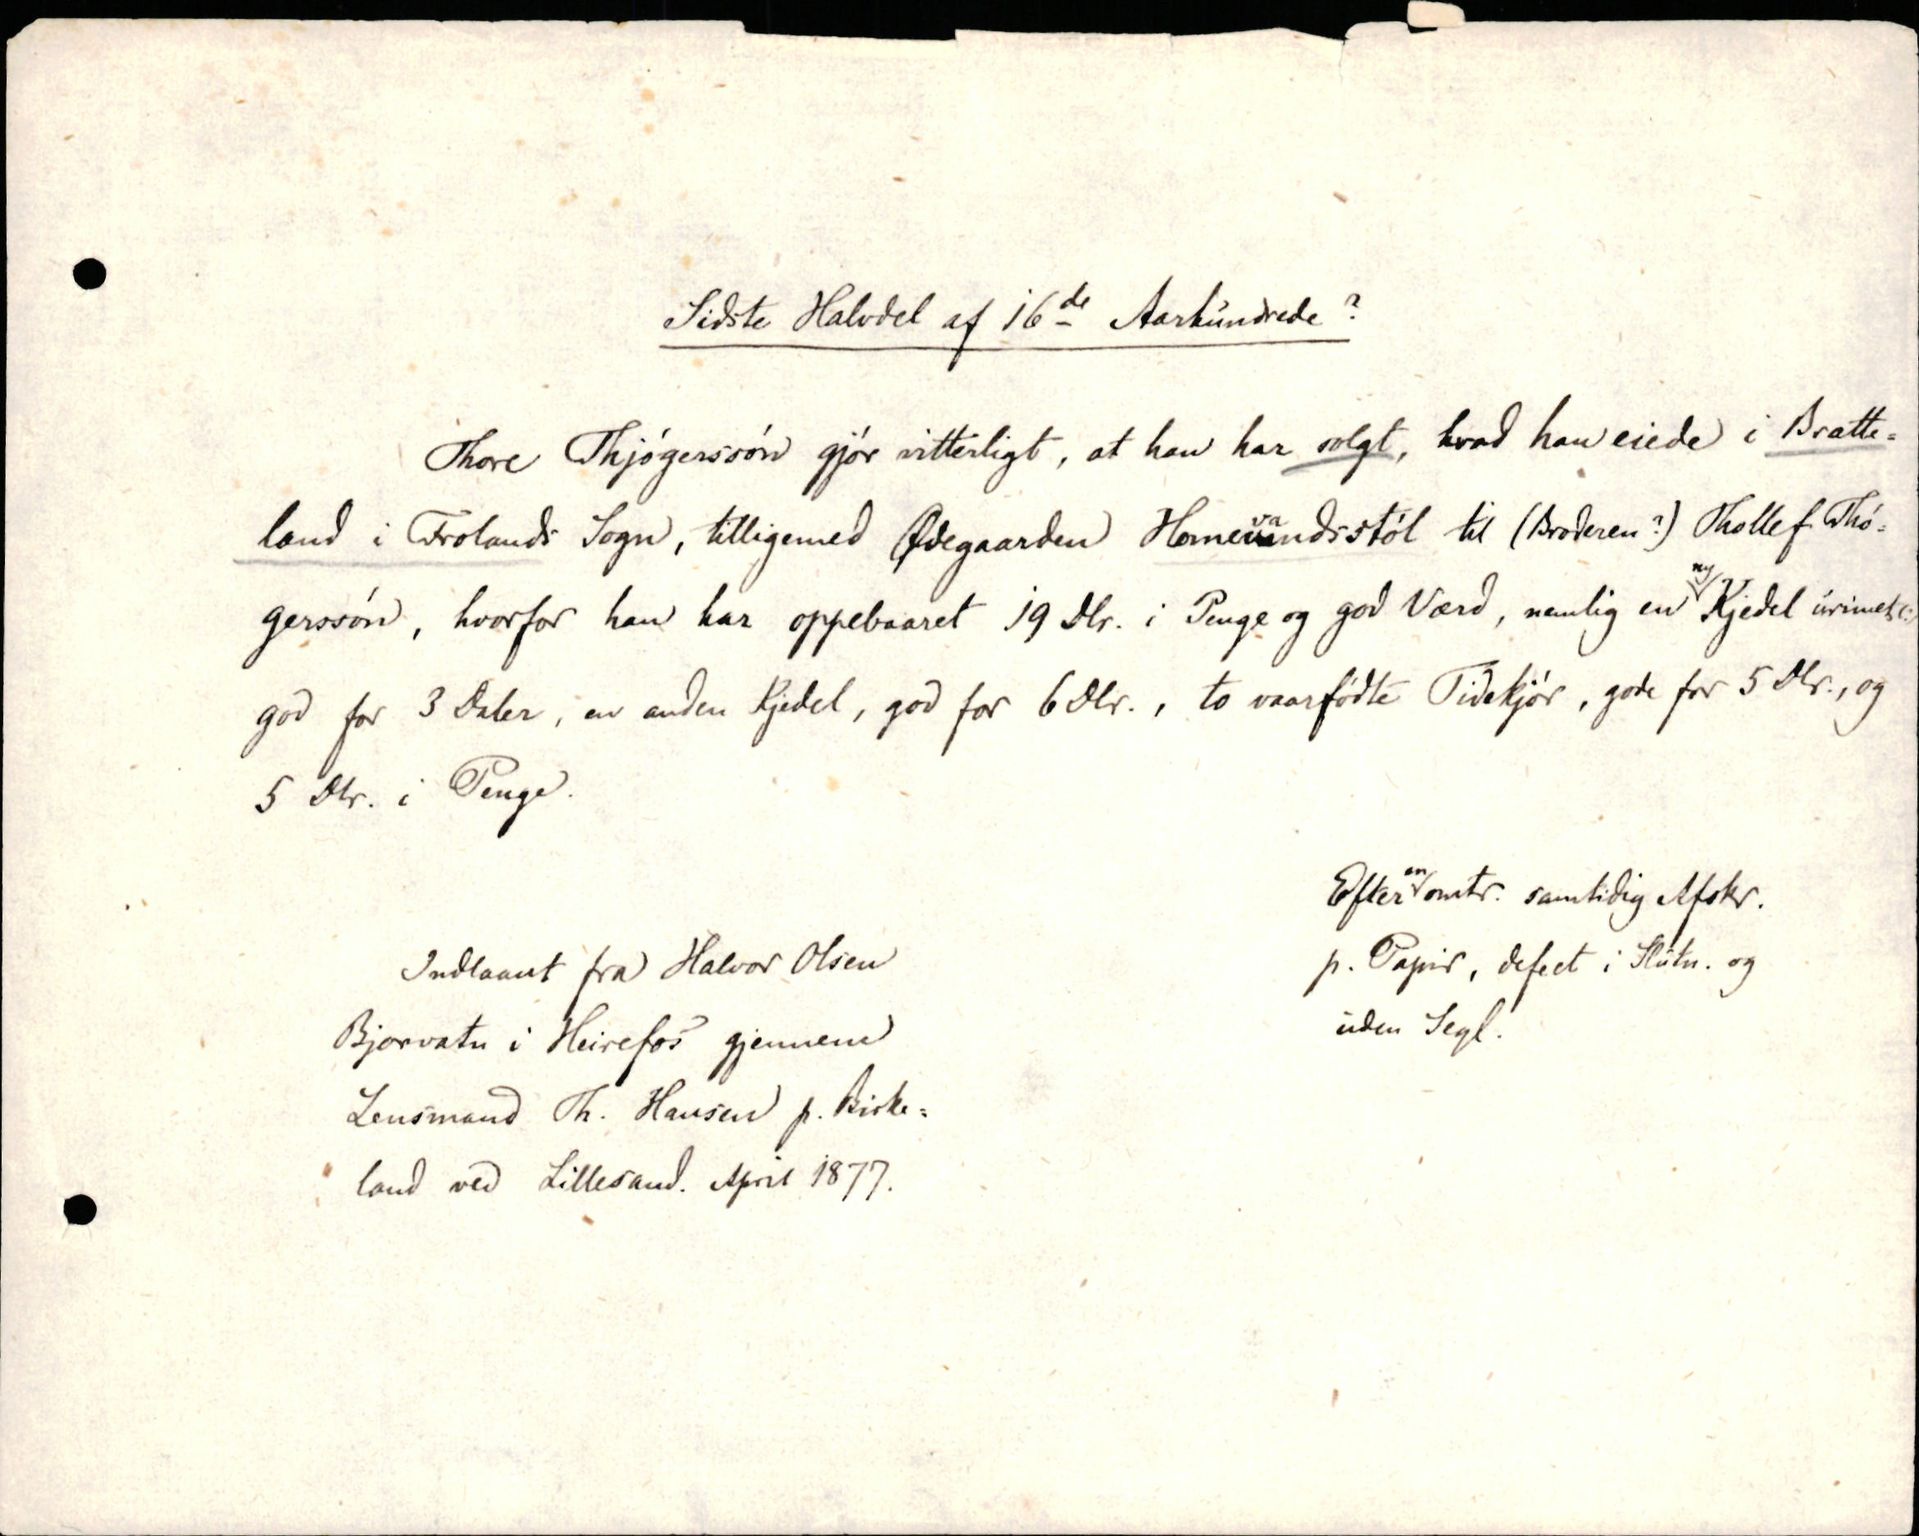 Sidste Halvdel af 16de Aarhundrede?
Thore Thjógerssón gjór vitterligt, at han har solgt, hvad han eiede i Bratte=
land i Frolands Sogn, tilligemed Ødegaarden Homevandsstól til (Broderen?) Thollef Thó=
gerssón, hvorfor han har oppebaaret 19 Dlr. i Penge og god Værd, nemlig en ny Kjedel
god for 3 Daler, en anden Kjedel, god for 6 Dlr., to vaarfódte Tidekjór, gode for 5 Dlr., og
5 Dlr. i Penge.
Efter en omtr. samtidig Afskr.
p. Papir, defect i Slutn. og
uden Segl.
Indlaant fra Halvor Olsen
Bjorvatn i Heirefos gjennem
Lensmand Th. Hansen p. Birke=
land ved Lillesand. April 1877.